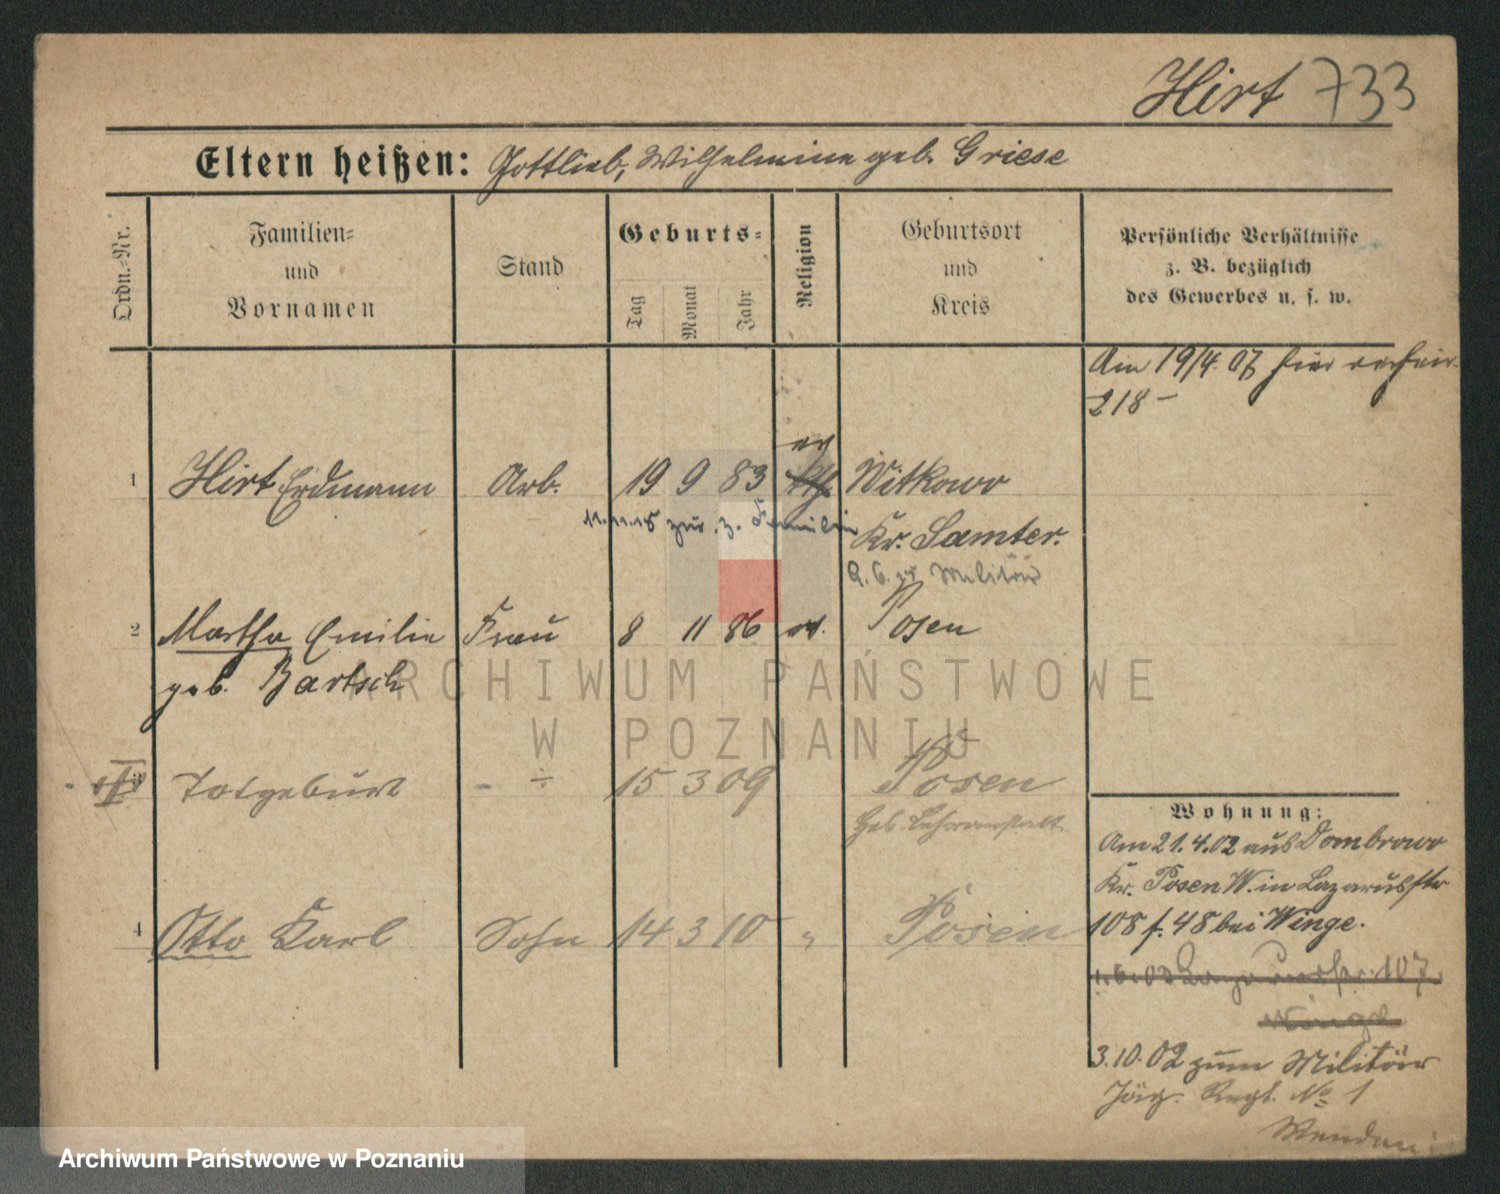 Hirt 733
Eltern heißen: Gottlieb, Wilhelmine geb. Griese
Ordn.-Nr.
Familien-
und
Vornamen
Stand
Geburts-
Tag
Monat
Jahr
Religion
Geburtsort
und
Kreis
Persönliche Verhältnisse
z. B. bezüglich
des Gewerbes u. s. w.
Am 19/4. 07 hier
218 -
1 Hirt Erdmann Arb. 19 9 83 ev Witkowo
11.11.18 zur. z. Familie
Kr. Samter.
Militär
2 Martha Emilie Frau 8 11 86 ev. Posen
geb. Bartsch
ARCHIWUM PAŃSTWOWE
W POZNANIU
3 Totgeburt - ÷ 15 3 09 Posen
Heb. Lehranstalt
4 Otto Karl Sohn 14 3 10 " Posen
Wohnung:
Am 21.4.02 aus Dombrowo
Kr. Posen W. in Lazarusstr
108 f. 48 bei Winge.
1.6.02 Lazarusstr. 107.
Winge
3.10.02 zum Militär
Jäg. Regt. No 1
Archiwum Państwowe w Poznaniu